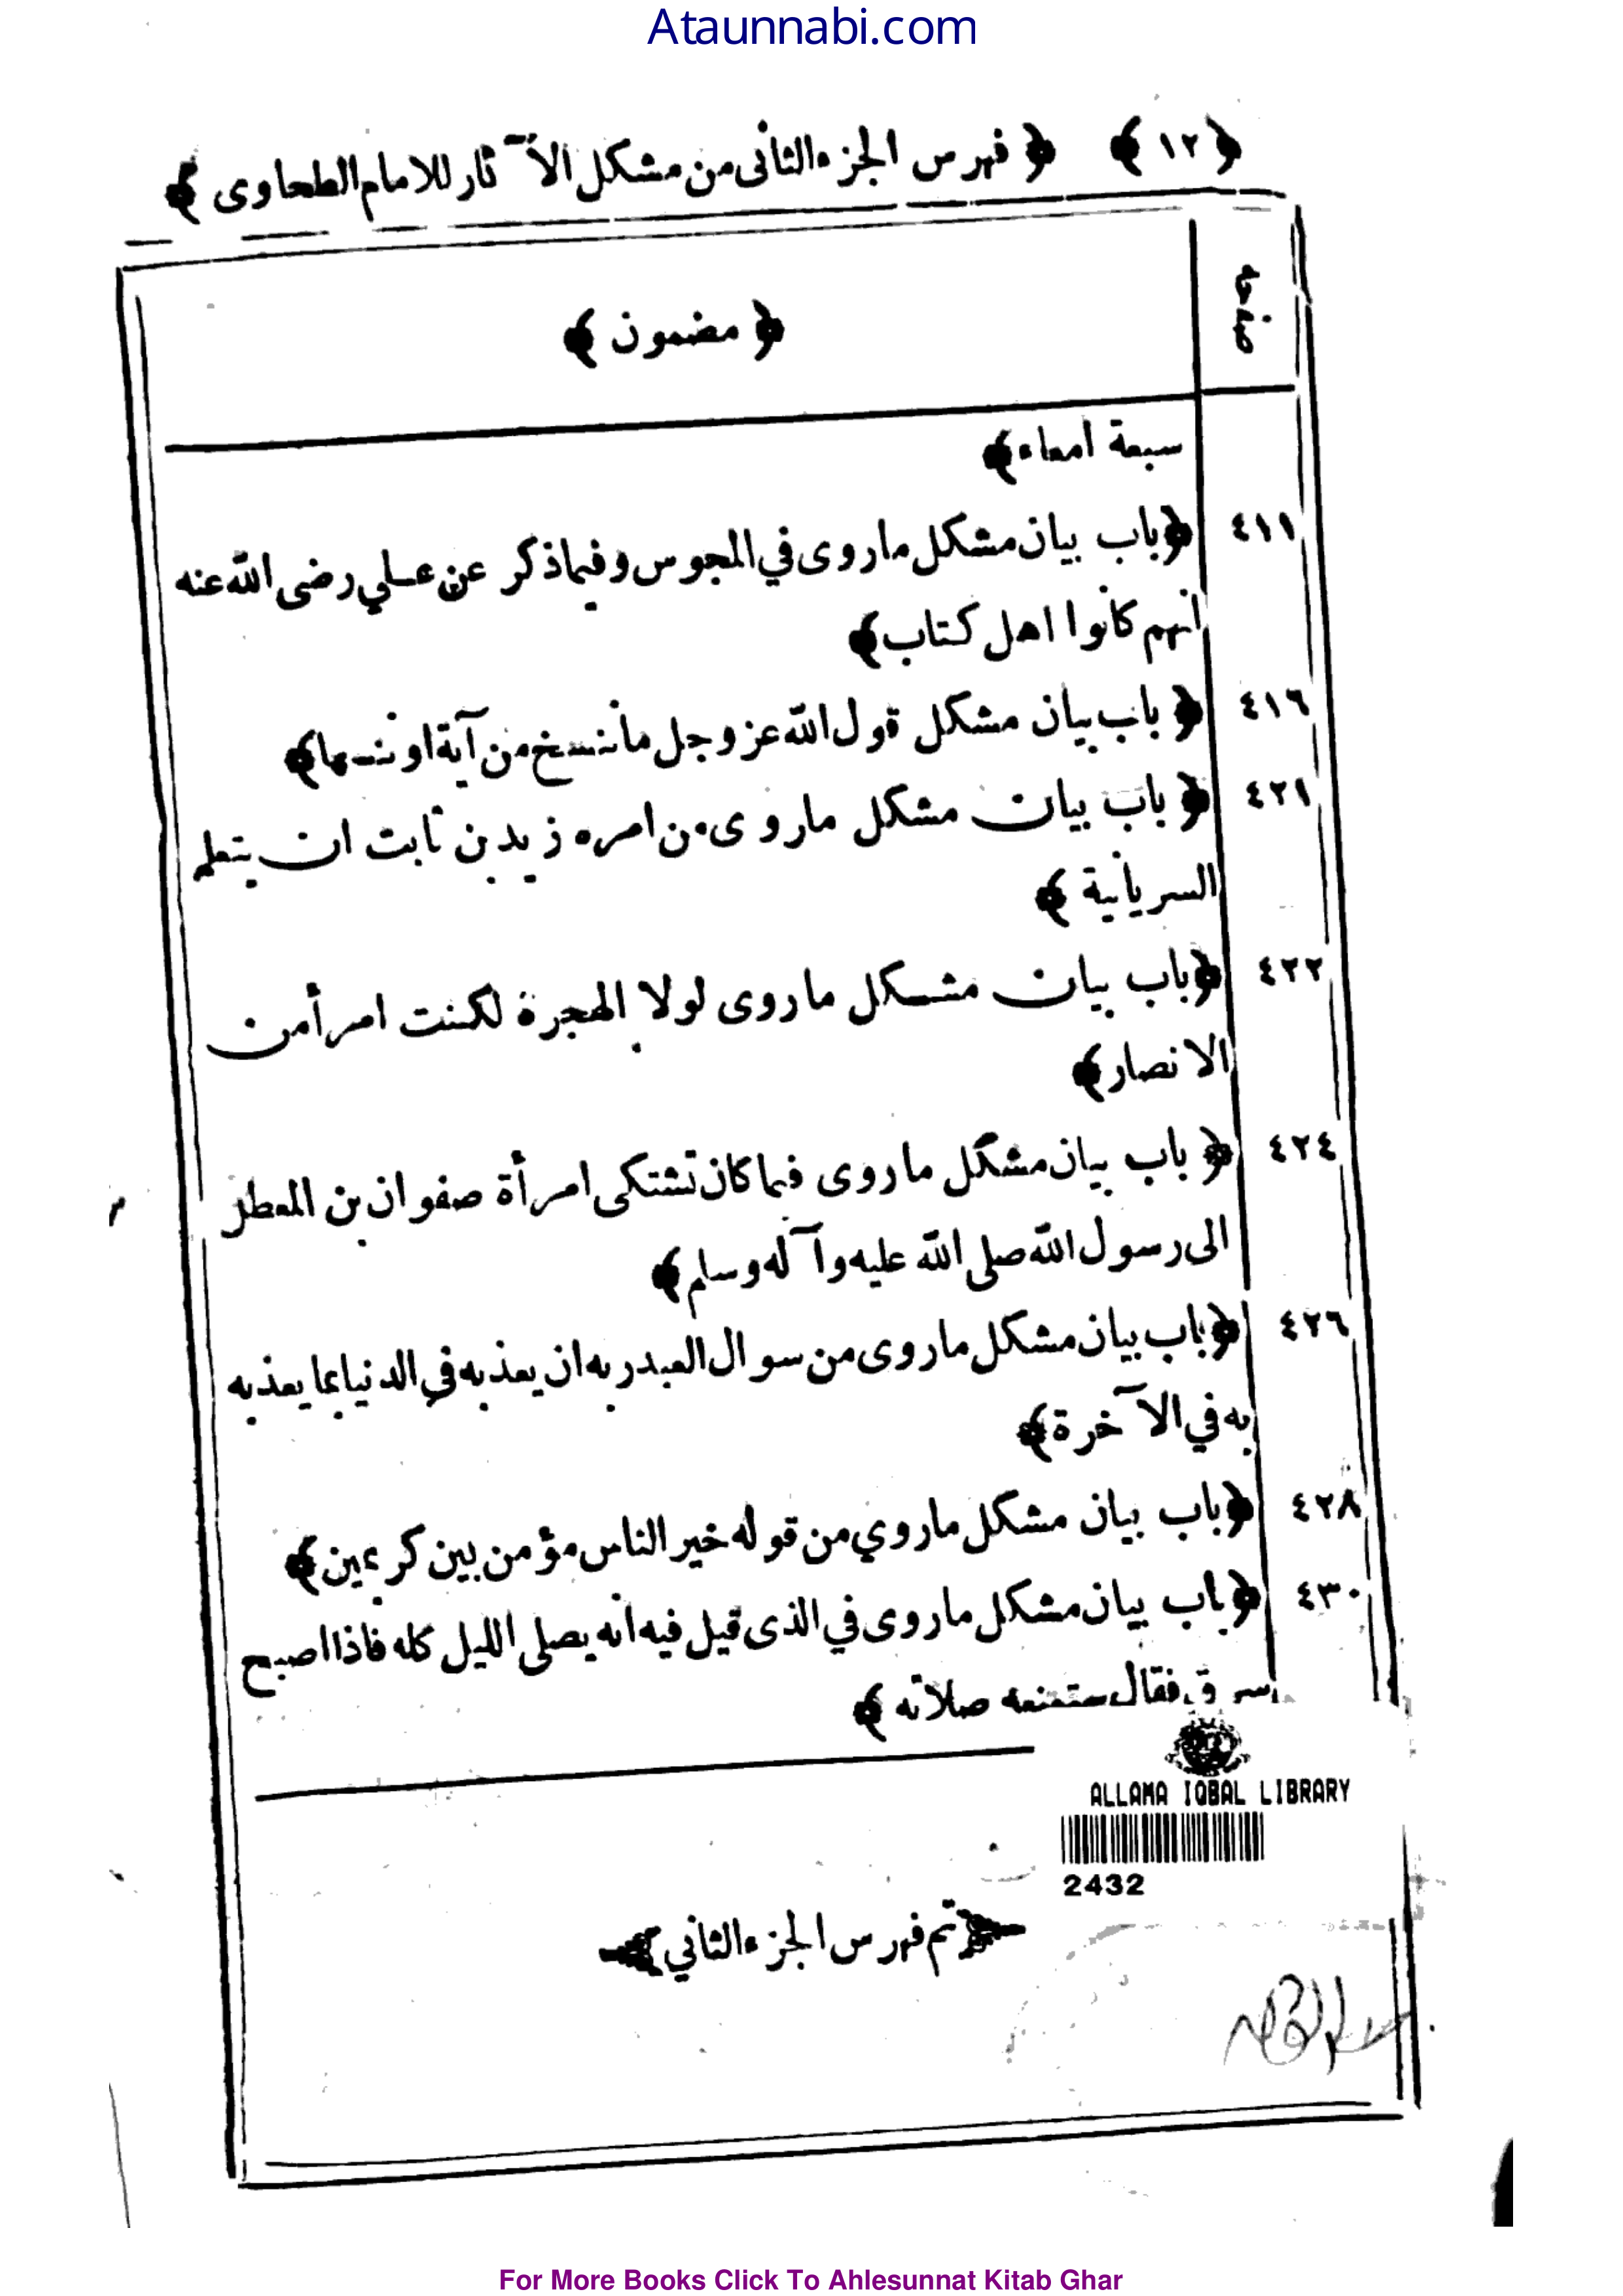 Ataunnabi.com
﴿١٢﴾ ﴿فهرس الجزء الثانى من مشكل الآثار للامام الطحاوى﴾
صفحة
﴿مضمون﴾
سبعة امعاء﴾
٤١١ ﴿باب بيان مشكل ماروى في المجوس وفيماذكر عن علي رضى الله عنه
انهم كانوا اهل كتاب﴾
٤١٦ ﴿باب بيان مشكل قول الله عز وجل ماننسخ من آية او ننسها﴾
٤٢١ ﴿باب بيان مشكل ماروى من امره زيد بن ثابت ان يتعلم
السريانية﴾
٤٢٢ ﴿باب بيان مشكل ماروى لولا الهجرة لكنت امرأ من
الانصار﴾
٤٢٤ ﴿باب بيان مشكل ماروى فيما كان تشتكى امرأة صفوان بن المعطل
الى رسول الله صلى الله عليه وآله وسلم﴾
٤٢٦ ﴿باب بيان مشكل ماروى من سوال العبد ربه ان يعذبه في الدنيا بما يعذبه
به في الآخرة﴾
٤٢٨ ﴿باب بيان مشكل ماروي من قوله خير الناس مؤمن بين كريمين﴾
٤٣٠ ﴿باب بيان مشكل ماروى في الذى قيل فيه انه يصلى الليل كله فاذا اصبح
سرق فقال ستمنعه صلاته﴾
ALLAMA IQBAL LIBRARY
2432
﴿تم فهرس الجزء الثاني﴾
For More Books Click To Ahlesunnat Kitab Ghar